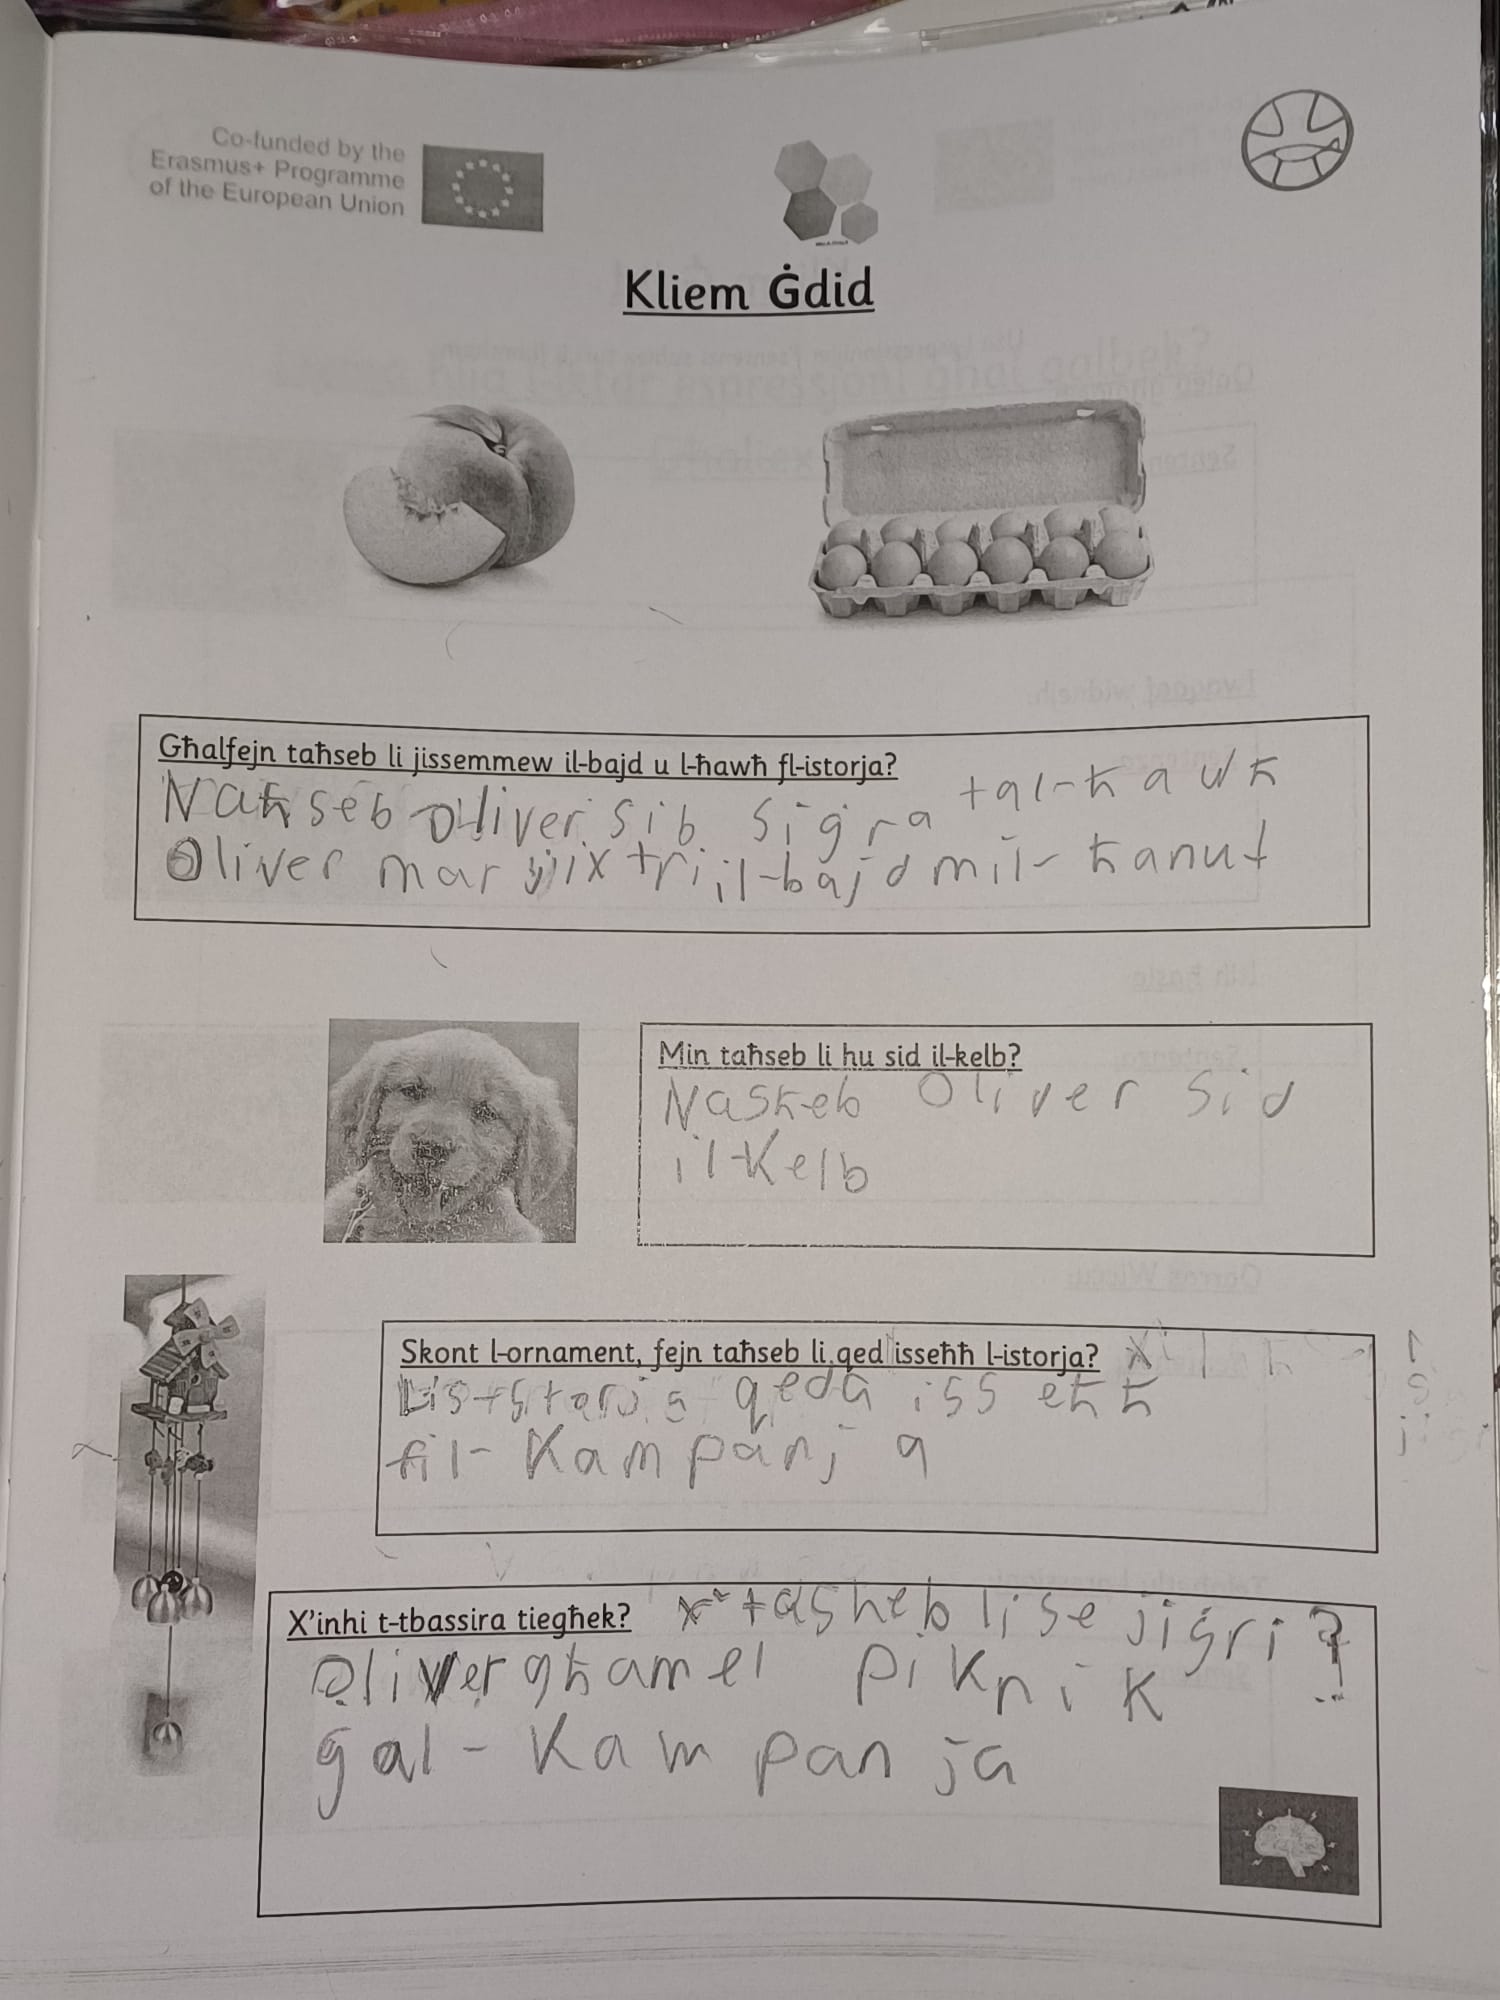 Co-funded by the
Erasmus+ Programme
of the European Union
Kliem Ġdid
Għalfejn taħseb li jissemmew il-bajd u l-ħawħ fl-istorja?
Naħseb Oliver sib siġra tal-ħawħ
Oliver mar jixtri il-bajd mil-ħanut
Min taħseb li hu sid il-kelb?
Nasħeb Oliver sid
il-Kelb
Skont l-ornament, fejn taħseb li qed isseħħ l-istorja?
qeda isseħħ
fil-Kampanja
X'inhi t-tbassira tiegħek? x'tasħeb li se jiġri?
Oliver għamel piknik
gal-Kampanja